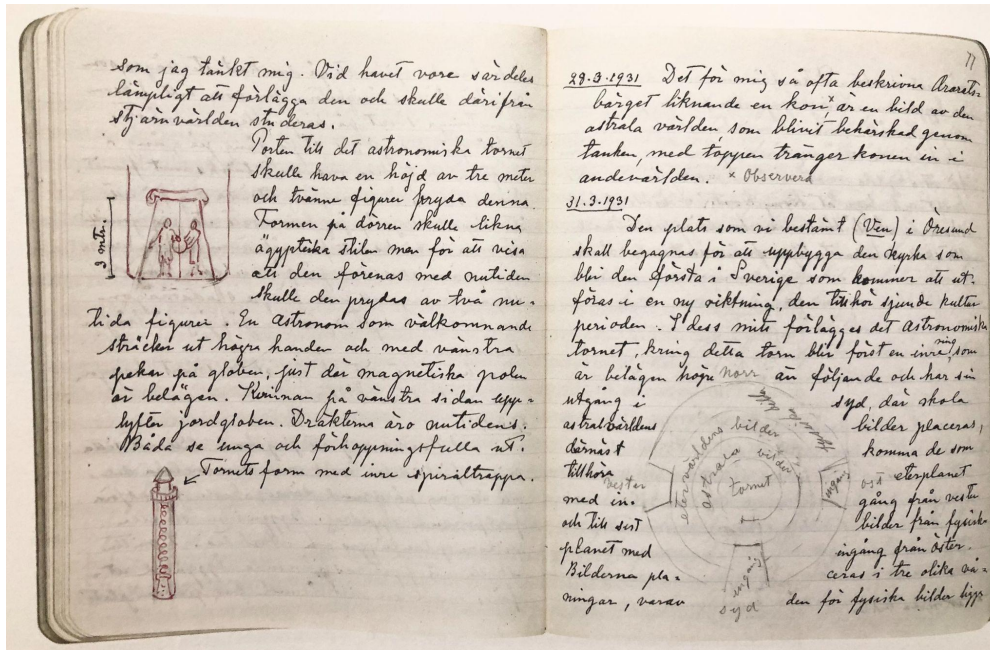 som jag tänkt mig. Vid havet vore särdeles
lämpligt att förlägga den och skulle därifrån
stjärnvärlden studeras.
Porten till det astronomiska tornet
skulle hava en höjd av tre meter
och tvänne figurer pryda denna.
Formen på dörren skulle likna
ägyptiska stilen men för att visa
att den förenas med nutiden
skulle den prydas av två nu-
tida figurer. En astronom som välkomnande
sträcker ut högra handen och med vänstra
pekar på globen, just där magnetiska polen
är belägen. Kvinnan på vänstra sidan upp-
lyfter jordgloben. Dräkterna äro nutidens.
Båda se unga och förhoppningsfulla ut.
Tornets form med inre spiraltrappa.
3 mtr.
77
29.3.1931 Det för mig så ofta beskrivna Ararats-
bärget liknande en kon x är en bild av den
astrala världen, som blivit behärskad genom
tanken, med toppen tränger konen in i
andevärlden. x Observera
31.3.1931
Den plats som vi bestämt (Ven) i Öresund
skall begagnas för att uppbygga den kyrka som
blir den första i Sverige som kommer att ut-
föras i en ny riktning, den tillhör sjunde kultur
perioden. I dess mitt förlägges det astronomiska
tornet, kring detta torn blir först en inre ring, som
är belägen högre än följande och har sin
utgång i syd, där skola
astralvärldens bilder placeras,
därnäst komma de som
tillhöra eterplanet
med in- gång från vester
och till sist bilder från fysiska
planet med ingång från öster.
Bilderna pla- ceras i tre olika vå-
ningar, varav den för fysiska bilder ligge
norr
vester
ost
syd
fysiska bilder
etervärldens bilder
astrala bilder
Tornet
ingång
ingång